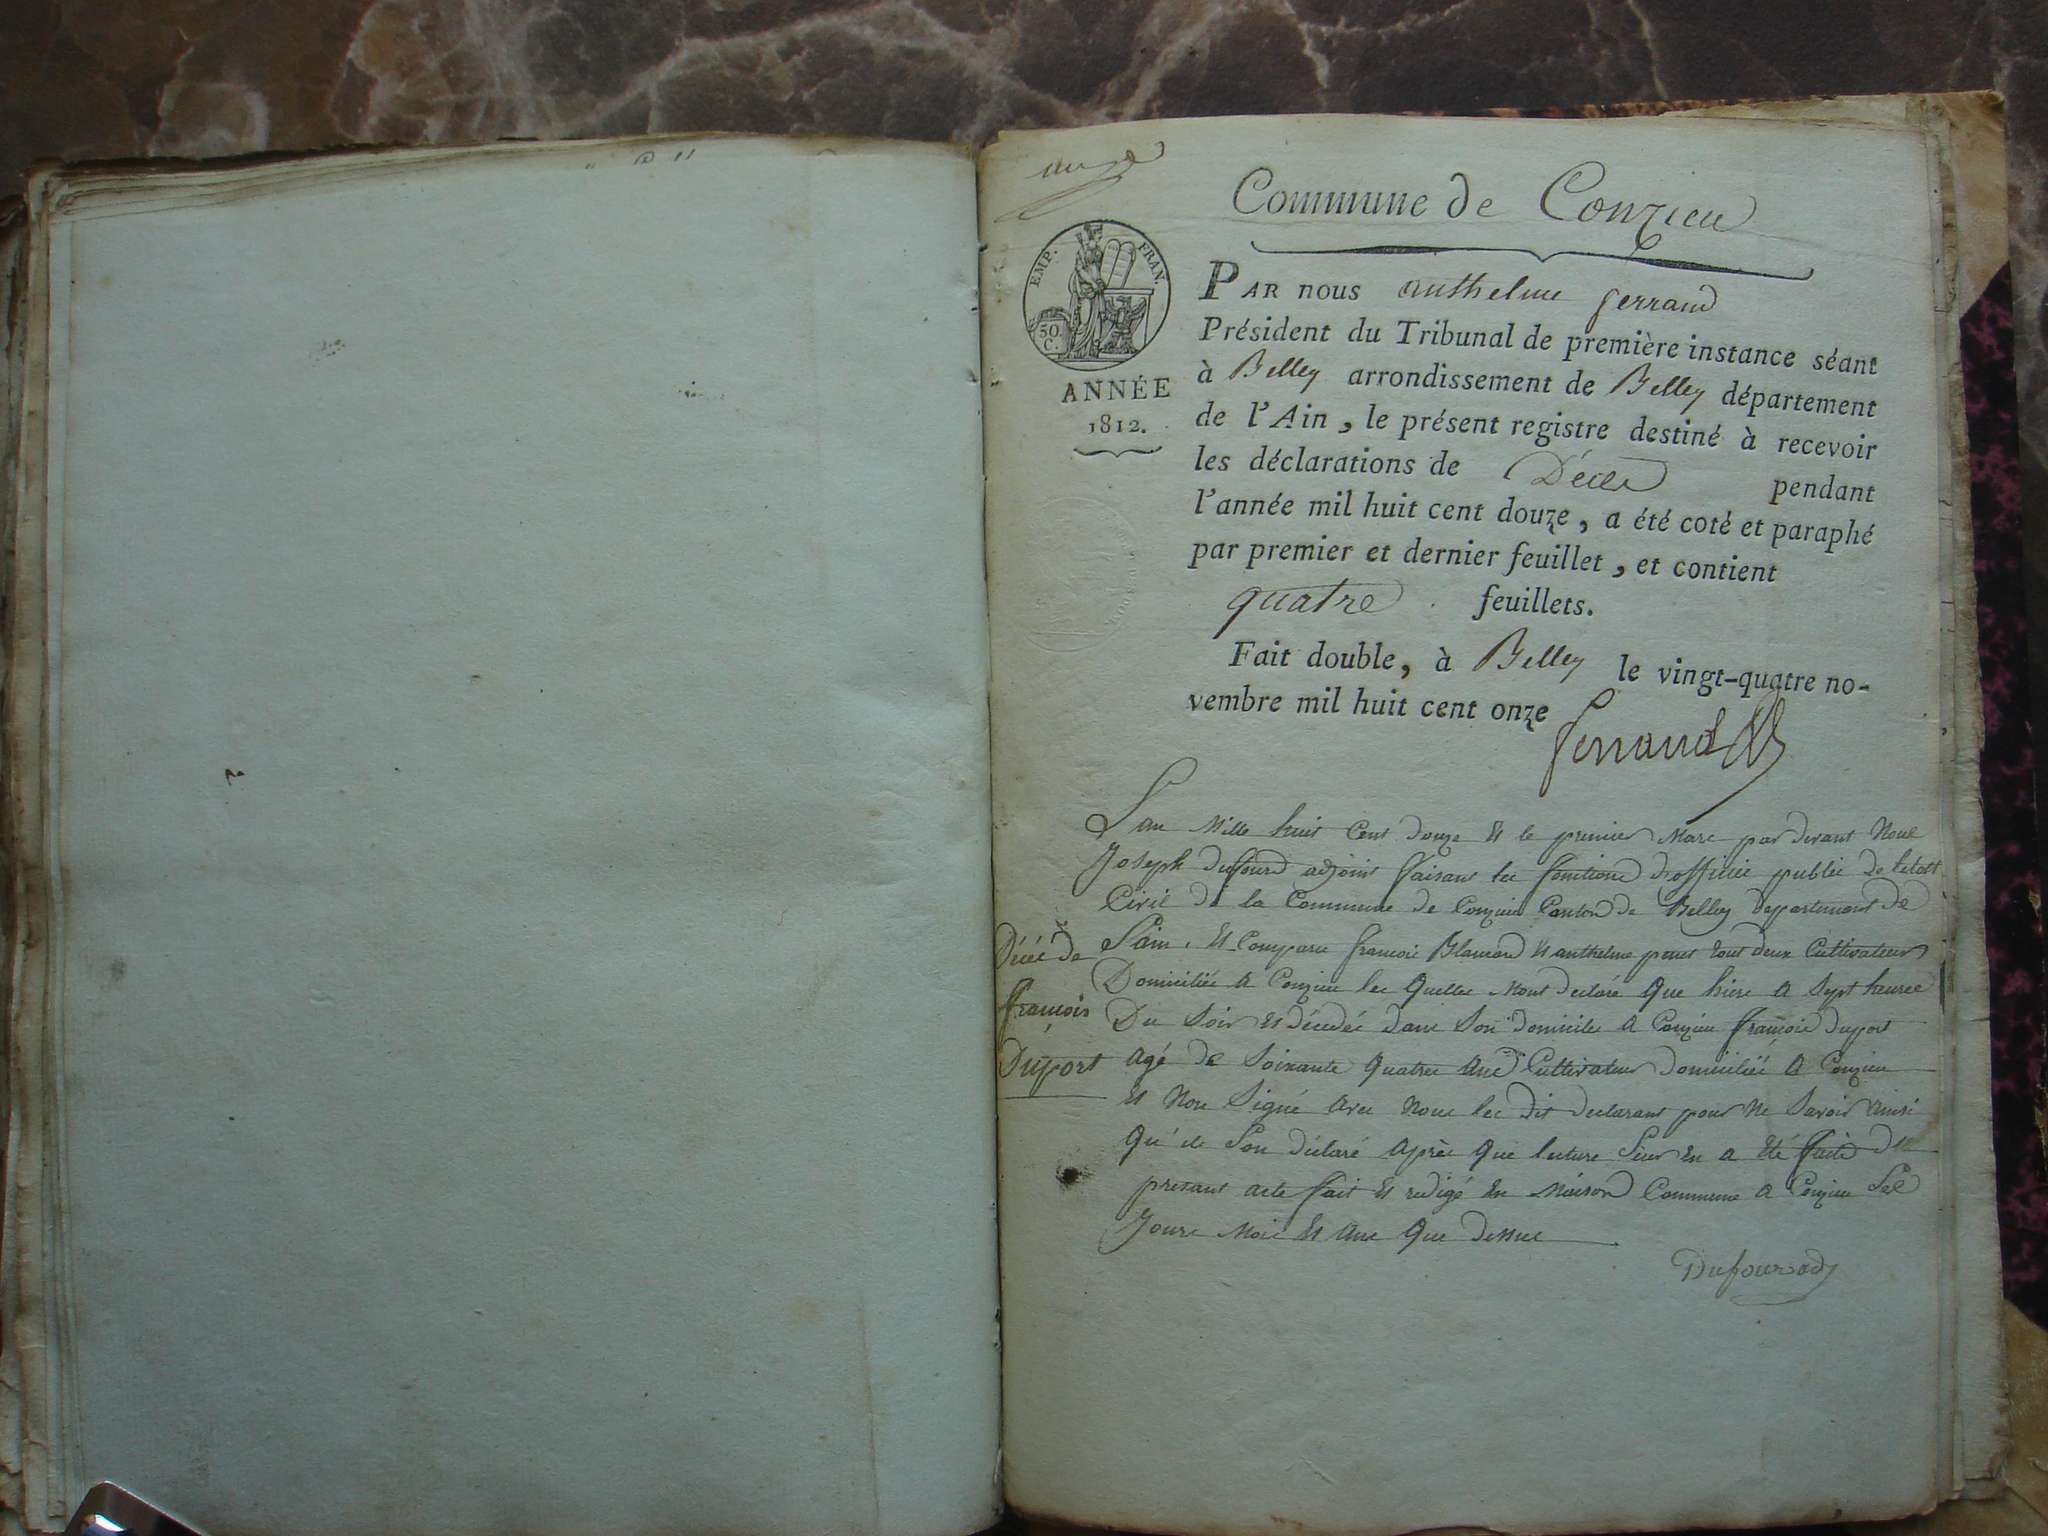 Commune de Conzieu
EMP. FRAN.
50 C.
ANNÉE
1812.
PAR nous anthelme ferrand
Président du Tribunal de première instance séant
à Belley arrondissement de Belley département
de l'Ain, le présent registre destiné à recevoir
les déclarations de Décès pendant
l'année mil huit cent douze, a été coté et paraphé
par premier et dernier feuillet, et contient
quatre feuillets.
Fait double, à Belley le vingt-quatre no-
vembre mil huit cent onze
ferrand
Lan Mille huit Cent douze Et le premier Mars par devant Nous
Joseph dufourd adjoint faisant les fonctions d'officier public de letat
Civil de la Commune de Conzieu Canton de Belley departement de
Lain, Et Comparu francois Et anthelme tout deux Cultivateurs
Domiciliés a Conzieu les Quelles Mont declaré Que hiers a Sept heures
Du Soir Et décedée dans Son domicile a Conzieu françois duport
Décé de
françois
Duport
agé de Soixante Quatres ans Cultivateur domiciliée a Conzieu
Et Non Signé avec Nous les dit declarant pour Ne Savoir ainsi
Qu'ils Lon déclaré après Que lecture Leur En a Eté faite du
presant acte fait Et redigé En Maison Commune a Conzieu Les
Jours Mois Et ans Que dessus
Dufour adj